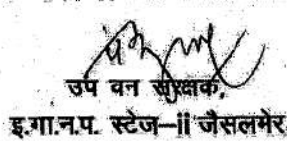 उप वन संरक्षक,
इ.गा.न.प. स्टेज–ii जैसलमेर